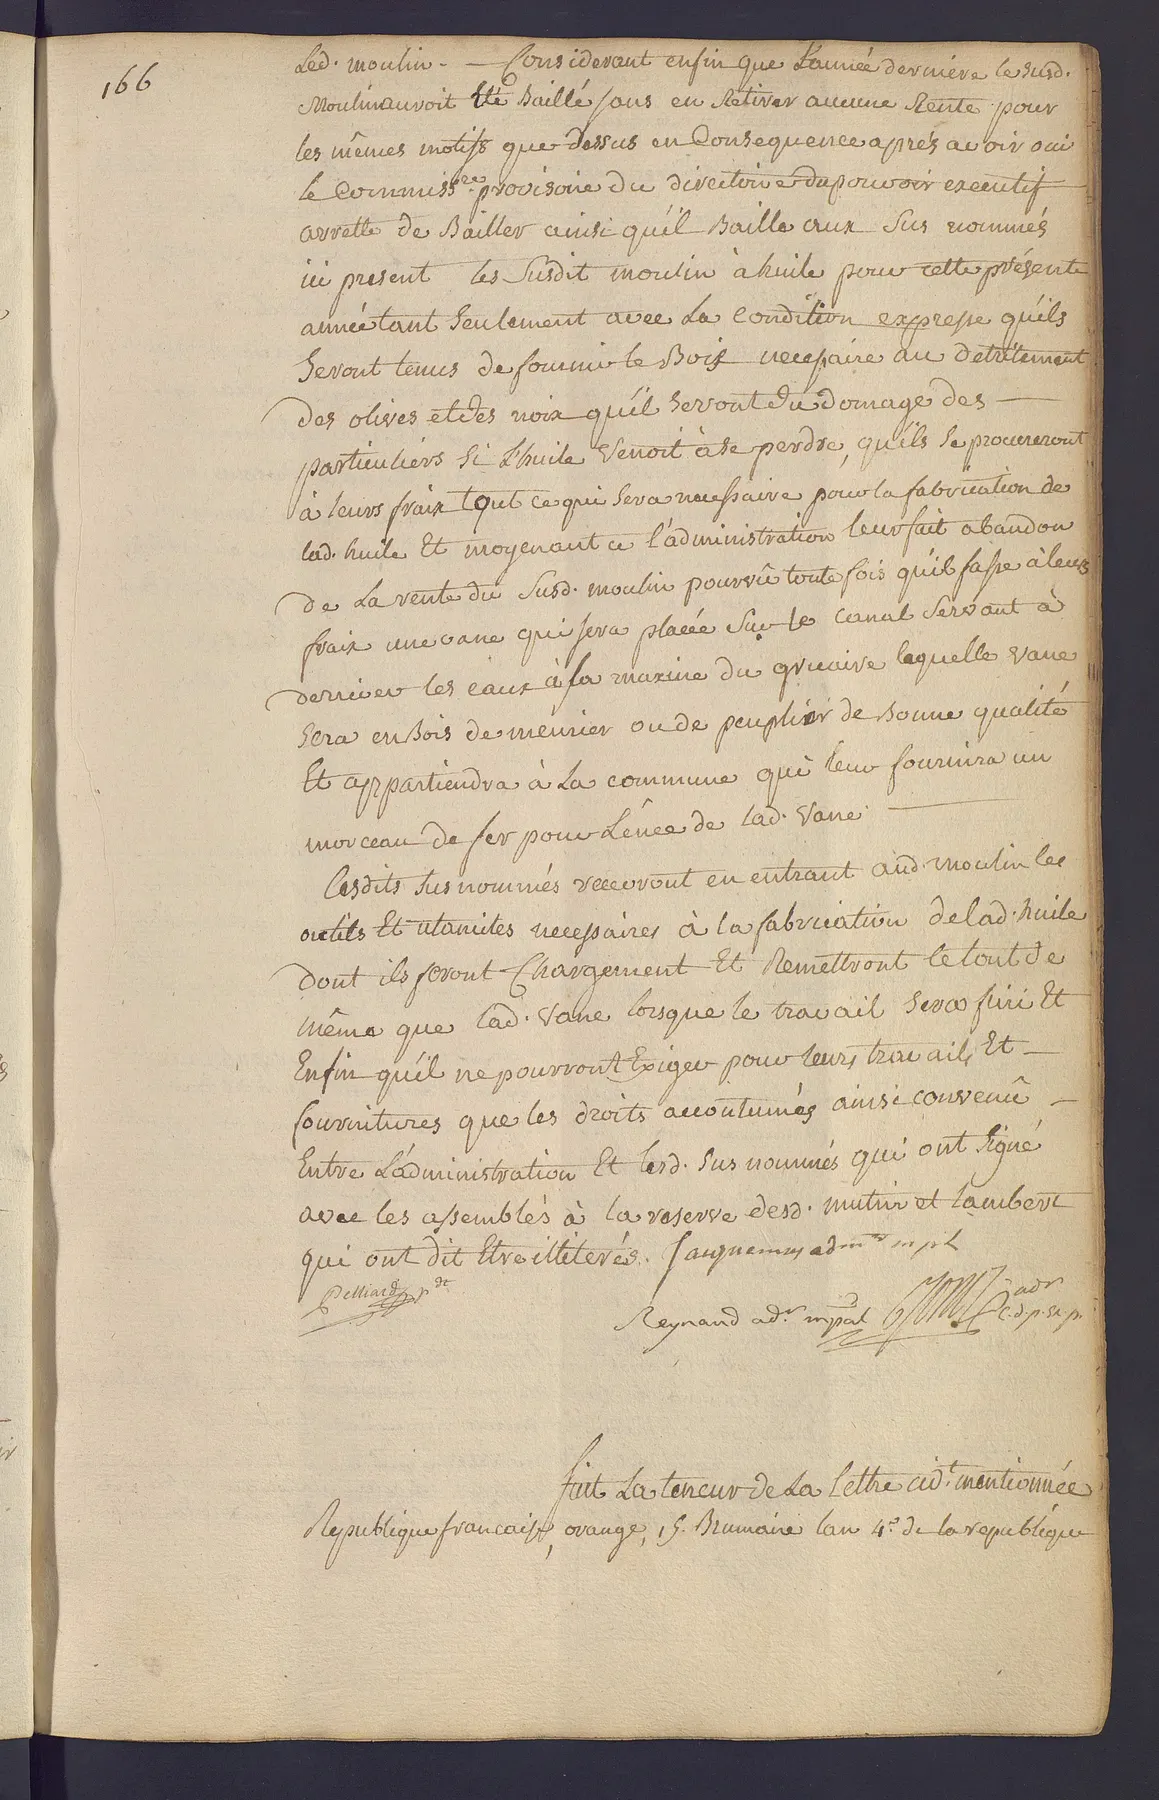 166
Led. moulin. — Considerant enfin que L'année derniere le susd.
Moulin auroit Eté Baillé sans en Retirer aucune Rente pour
les mêmes motifs que dessus en Consequence aprés avoir oui
le Commiss.re provisoire du directoire du pouvoir executif
arrette de Bailler ainsi qu'il Baille aux sus nommés
ici present les susdit moulin à huile pour cette présente
année tant seulement avec La Condition expresse qu'ils
seront tenus de fournir le Bois necessaire au detritement
des olives et des noix qu'il seront du domage des —
particuliers si L'huile venoit à se perdre, qu'ils se procureront
à leurs fraix tout ce qui sera necessaire pour la fabrication de
lad. huile Et moyenant ce l'administration leur fait abandon
de La rente du susd. moulin pourvû toute fois qu'il fasse à leurs
fraix une vane qui sera placée sur le canal servant à
deriver les eaux à la du laquelle vane
sera en Bois de meurier ou de peuplier de Bonne qualité
Et appartiendra à La commune qui leur fournira un
morceau de fer pour L' de lad. vane. —
Lesdits sus nommés recevront en entrant aud. moulin les
outils Et utanciles necessaires à la fabrication de lad. huile
dont ils feront Chargement Et Remettront le tout de
même que lad. vane lorsque le travail sera fini Et
Enfin qu'il ne pourront Exiger pour leurs travails Et —
fournitures que les droits accoutumés ainsi convenû —
Entre L'administration Et lesd. sus nommés qui ont signé
avec les assemblés à la reserve desd. mutin et lambert
qui ont dit Etre illiterés. adm.r mpl
Pelliard p.dt
Reynaud ad.r mpal adr
c.d.p.ex.p.
suit La teneur de La Lettre cid.t mentionnée
Republique francaise, orange, 15. Brumaire lan 4.e de la republique